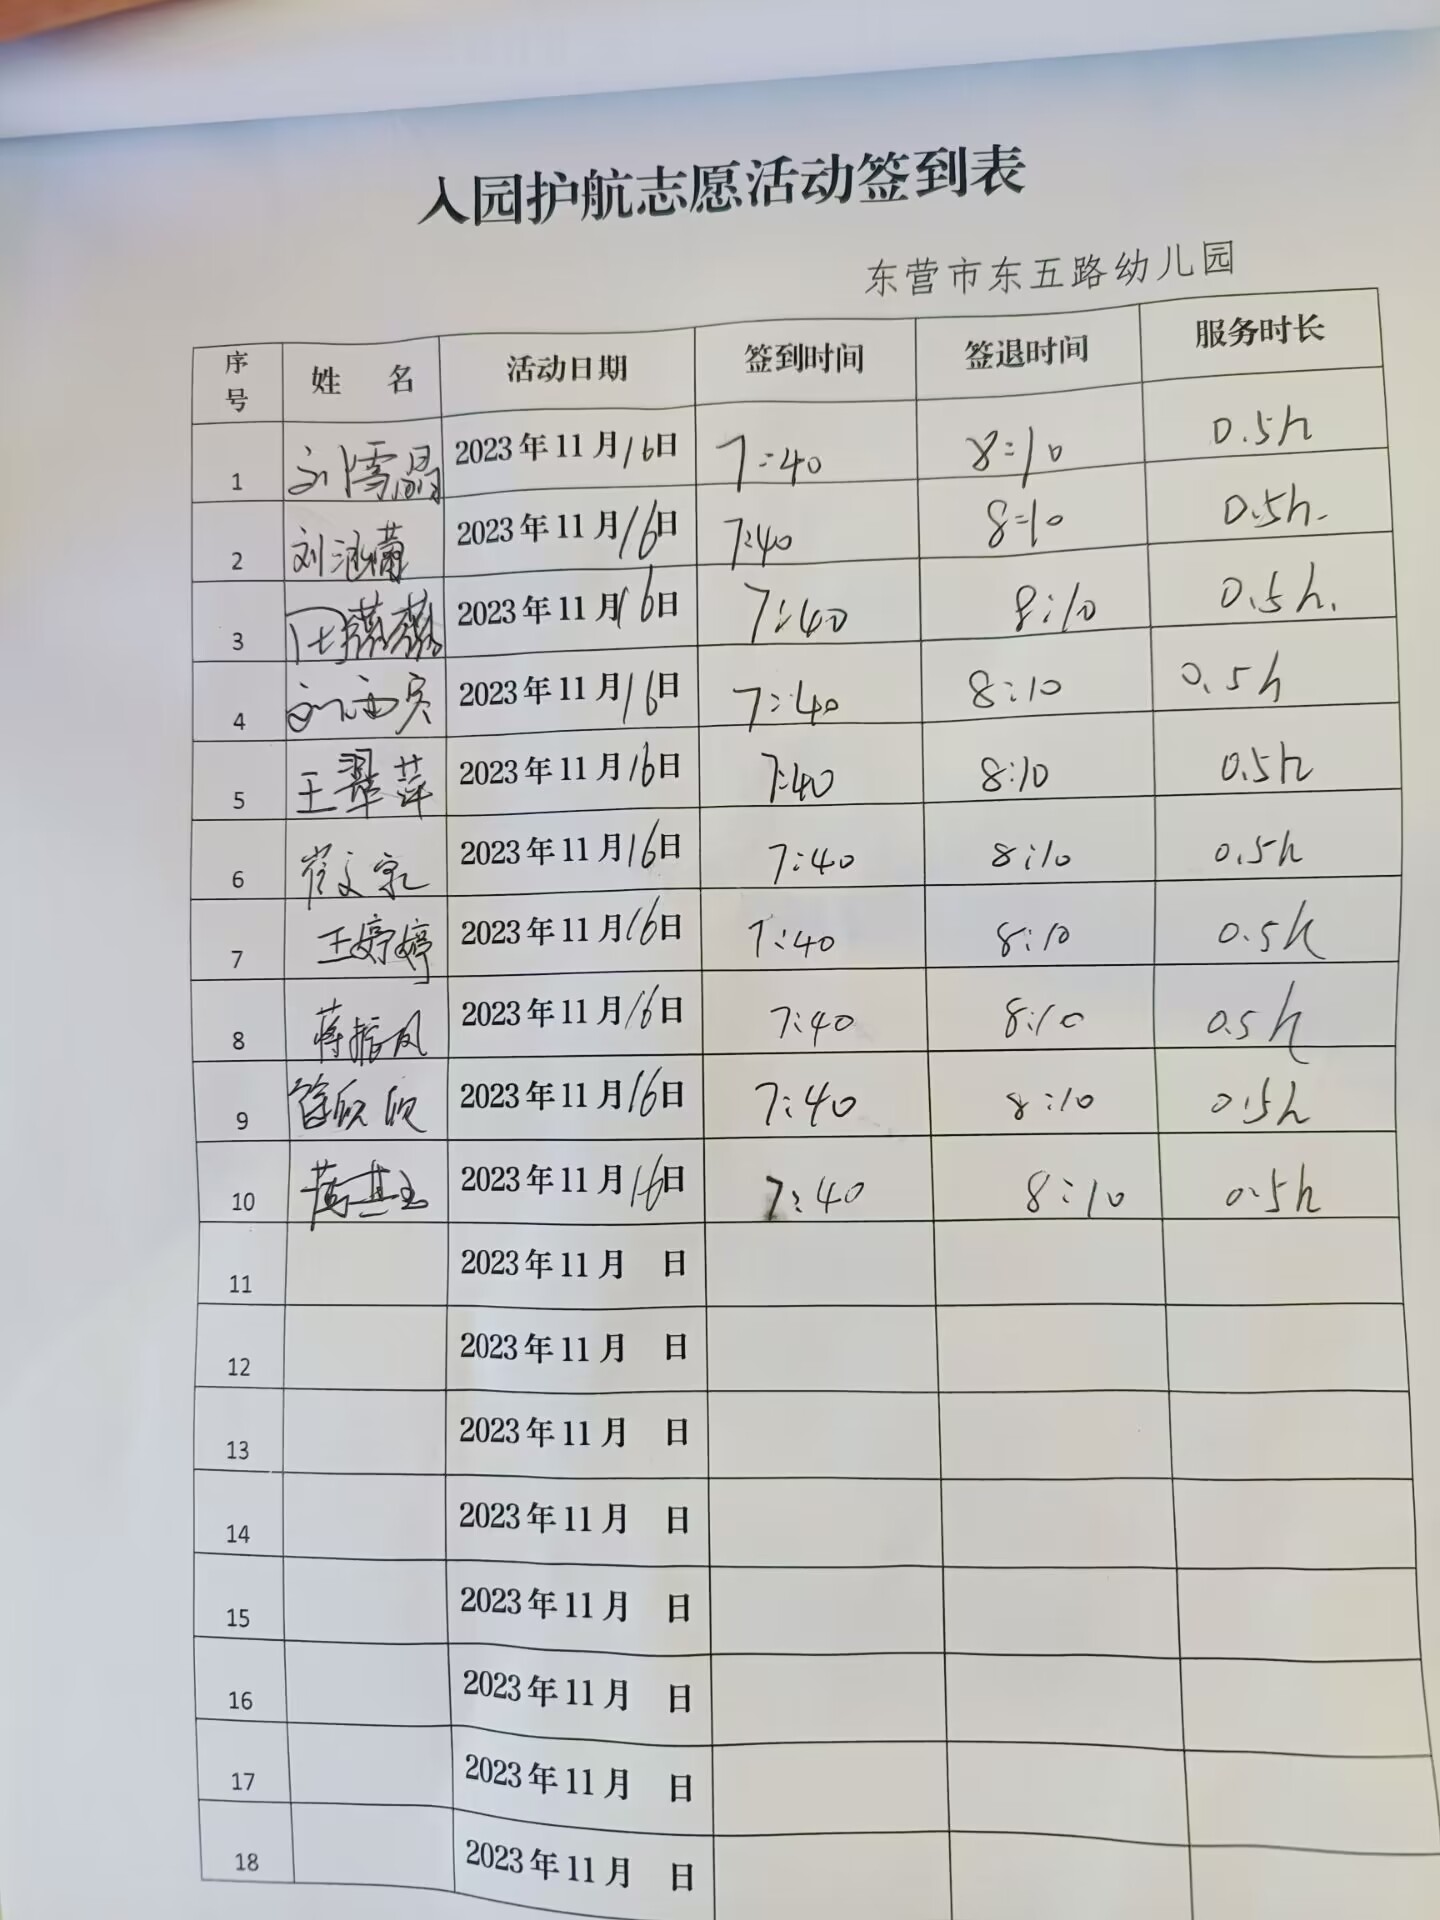 入园护航志愿活动签到表
东营市东五路幼儿园
序号 姓 名 活动日期 签到时间 签退时间 服务时长
1 刘雪晶 2023年11月16日 7:40 8:10 0.5h
2 刘涵潇 2023年11月16日 7:40 8:10 0.5h.
3 2023年11月16日 7:40 8:10 0.5h.
4 2023年11月16日 7:40 8:10 0.5h
5 王翠萍 2023年11月16日 7:40 8:10 0.5h
6 崔文家 2023年11月16日 7:40 8:10 0.5h
7 王婷婷 2023年11月16日 7:40 8:10 0.5h
8 蒋振凤 2023年11月16日 7:40 8:10 0.5h
9 2023年11月16日 7:40 8:10 0.5h
10 2023年11月16日 7:40 8:10 0.5h
11 2023年11月 日
12 2023年11月 日
13 2023年11月 日
14 2023年11月 日
15 2023年11月 日
16 2023年11月 日
17 2023年11月 日
18 2023年11月 日